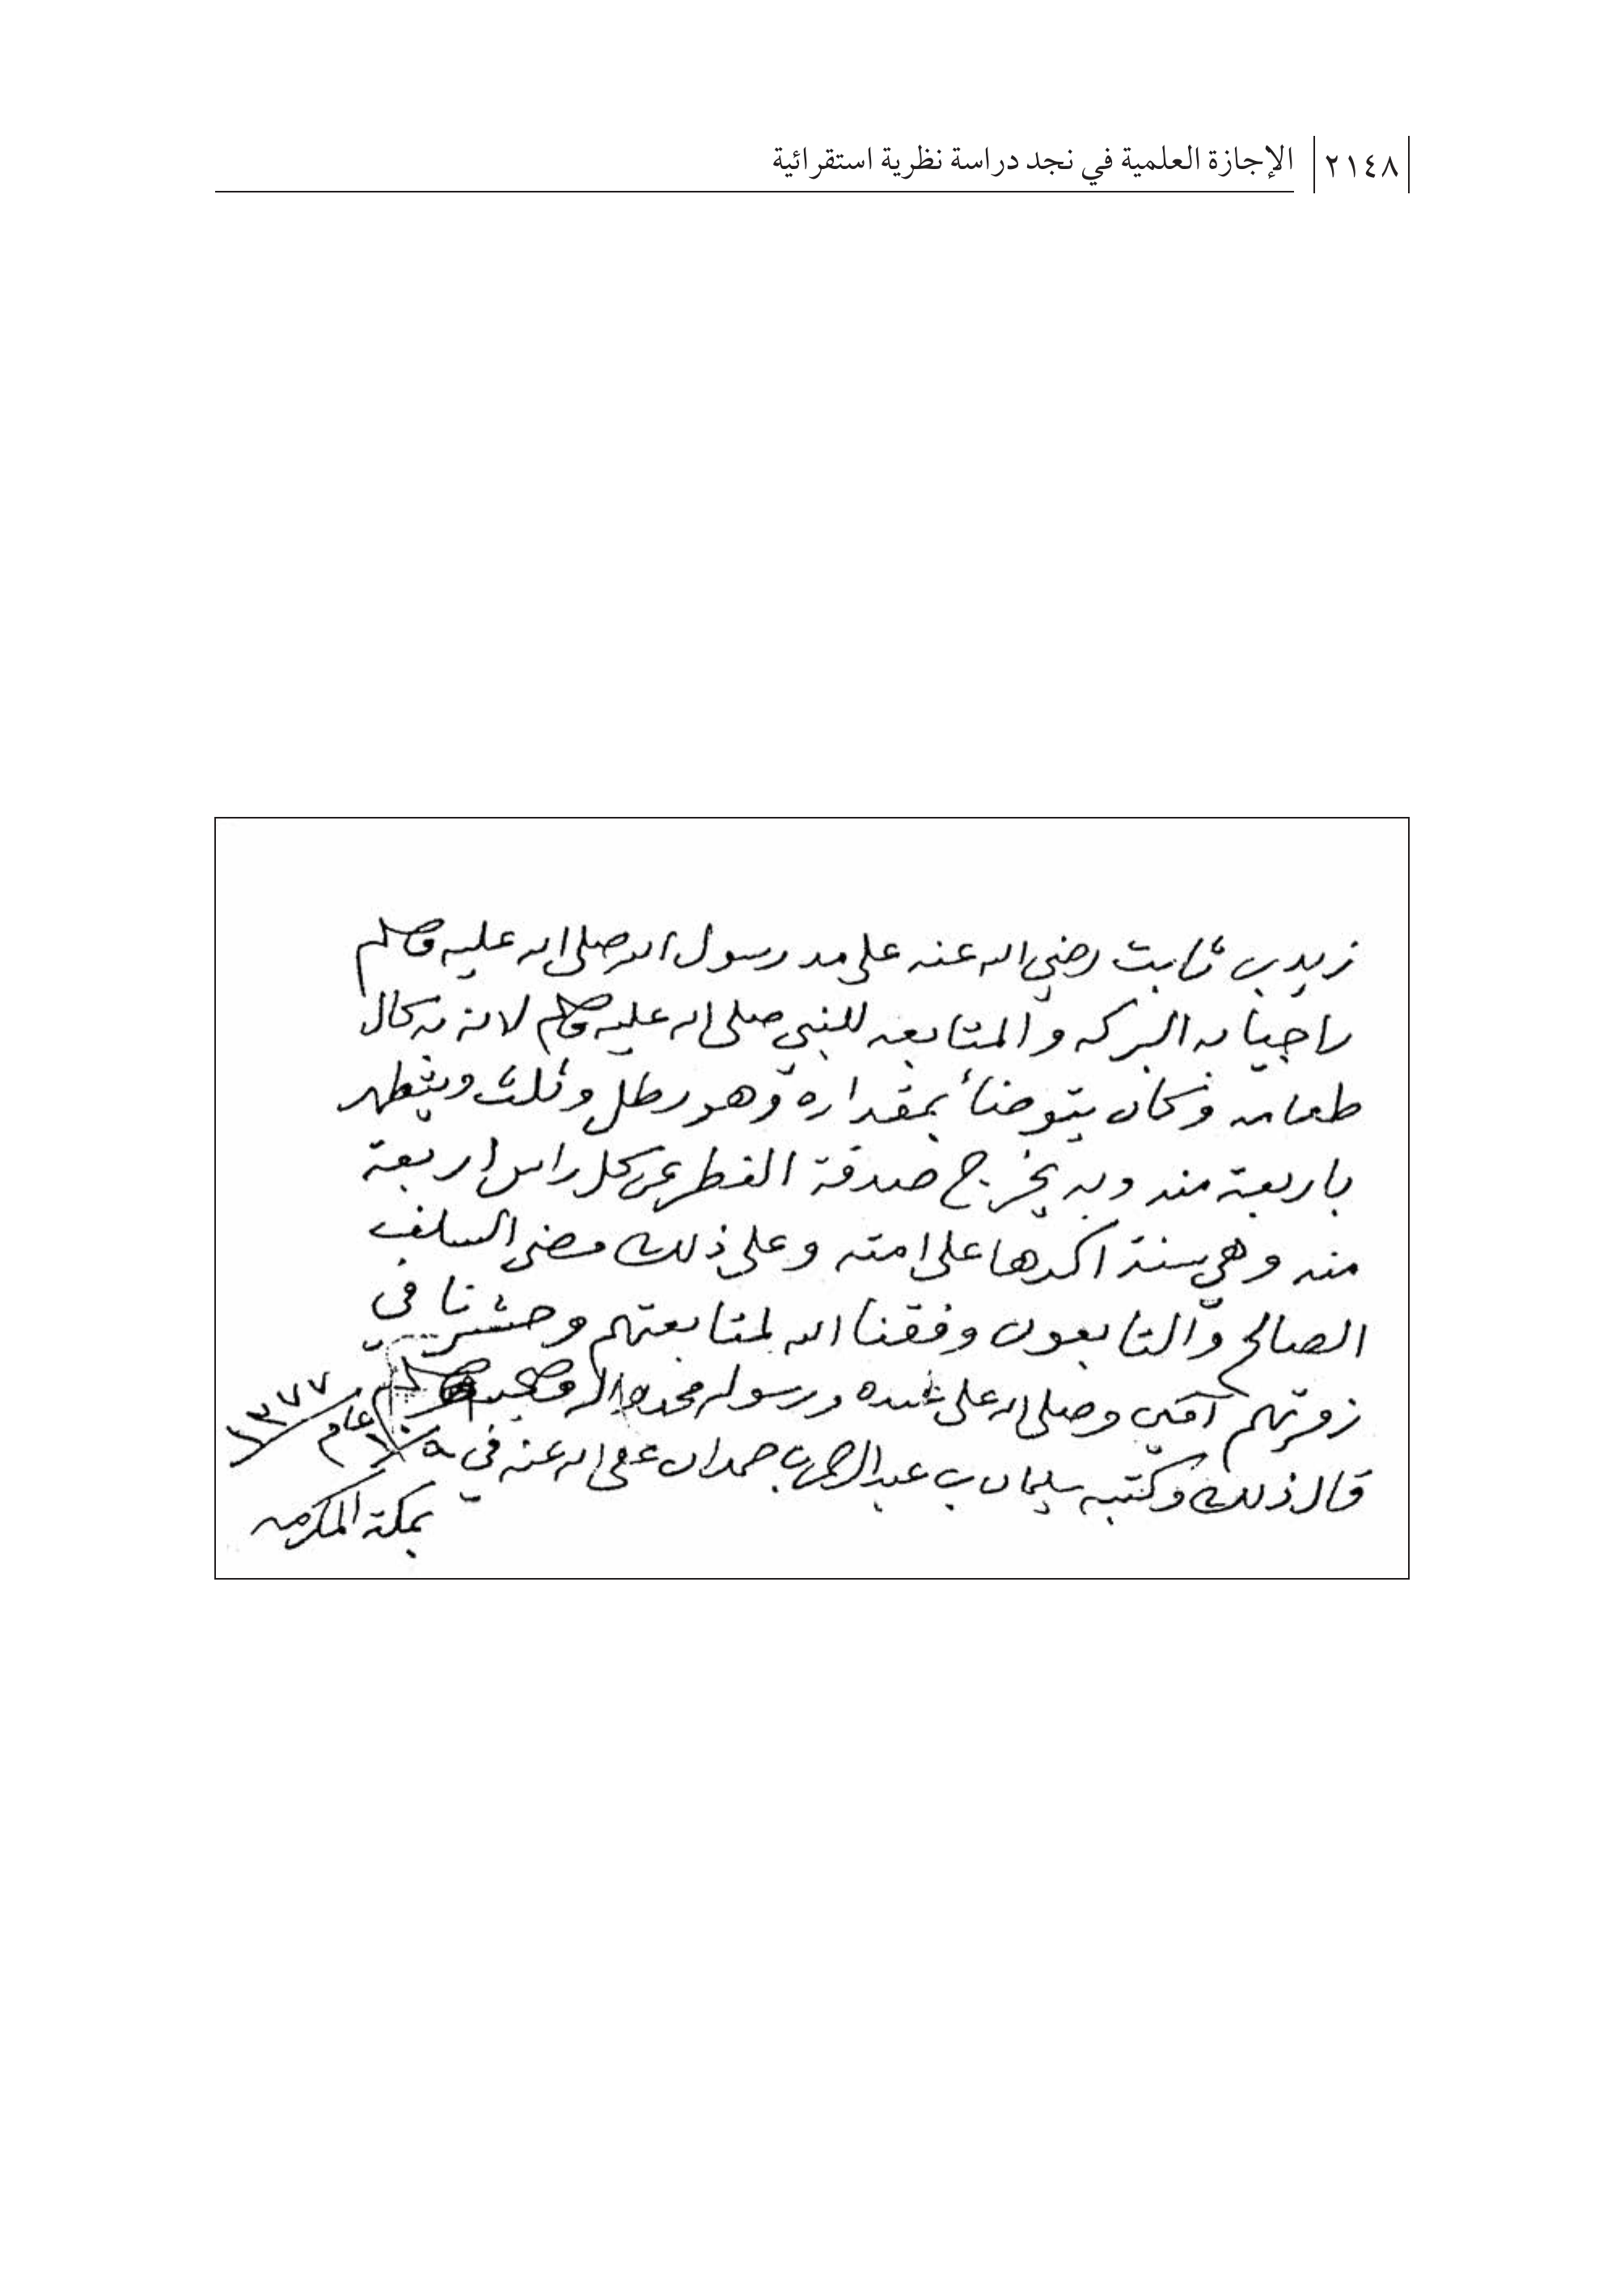 ٢١٤٨ الإجازة العلمية في نجد دراسة نظرية استقرائية
زيد بن ثابت رضي الله عنه على مد رسول الله صلى الله عليه وسلم
راجيا به البركه والمتابعه للنبي صلى الله عليه وسلم لانه به كال
طعامه وكان يتوضأ بمقداره وهو رطل وثلث ويتطهر
باربعة منه وبه يخرج صدقة الفطر عن كل راس اربعة
منه وهي سنة اكدها على امته وعلى ذلك مضى السلف
الصالح والتابعون وفقنا الله لمتابعتهم وحشرنا في
زمرتهم آمين وصلى الله على عبده ورسوله محمد واله وصحبه وسلم
قال ذلك وكتبه سليمان بن عبد الرحمن بن حمدان عفى الله عنه في عام ١٣٧٧
بمكة المكرمه